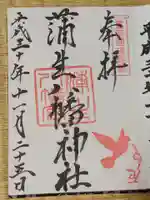 奉拝
蒲生八幡神社
平成三十年十一月二十五日
平成三